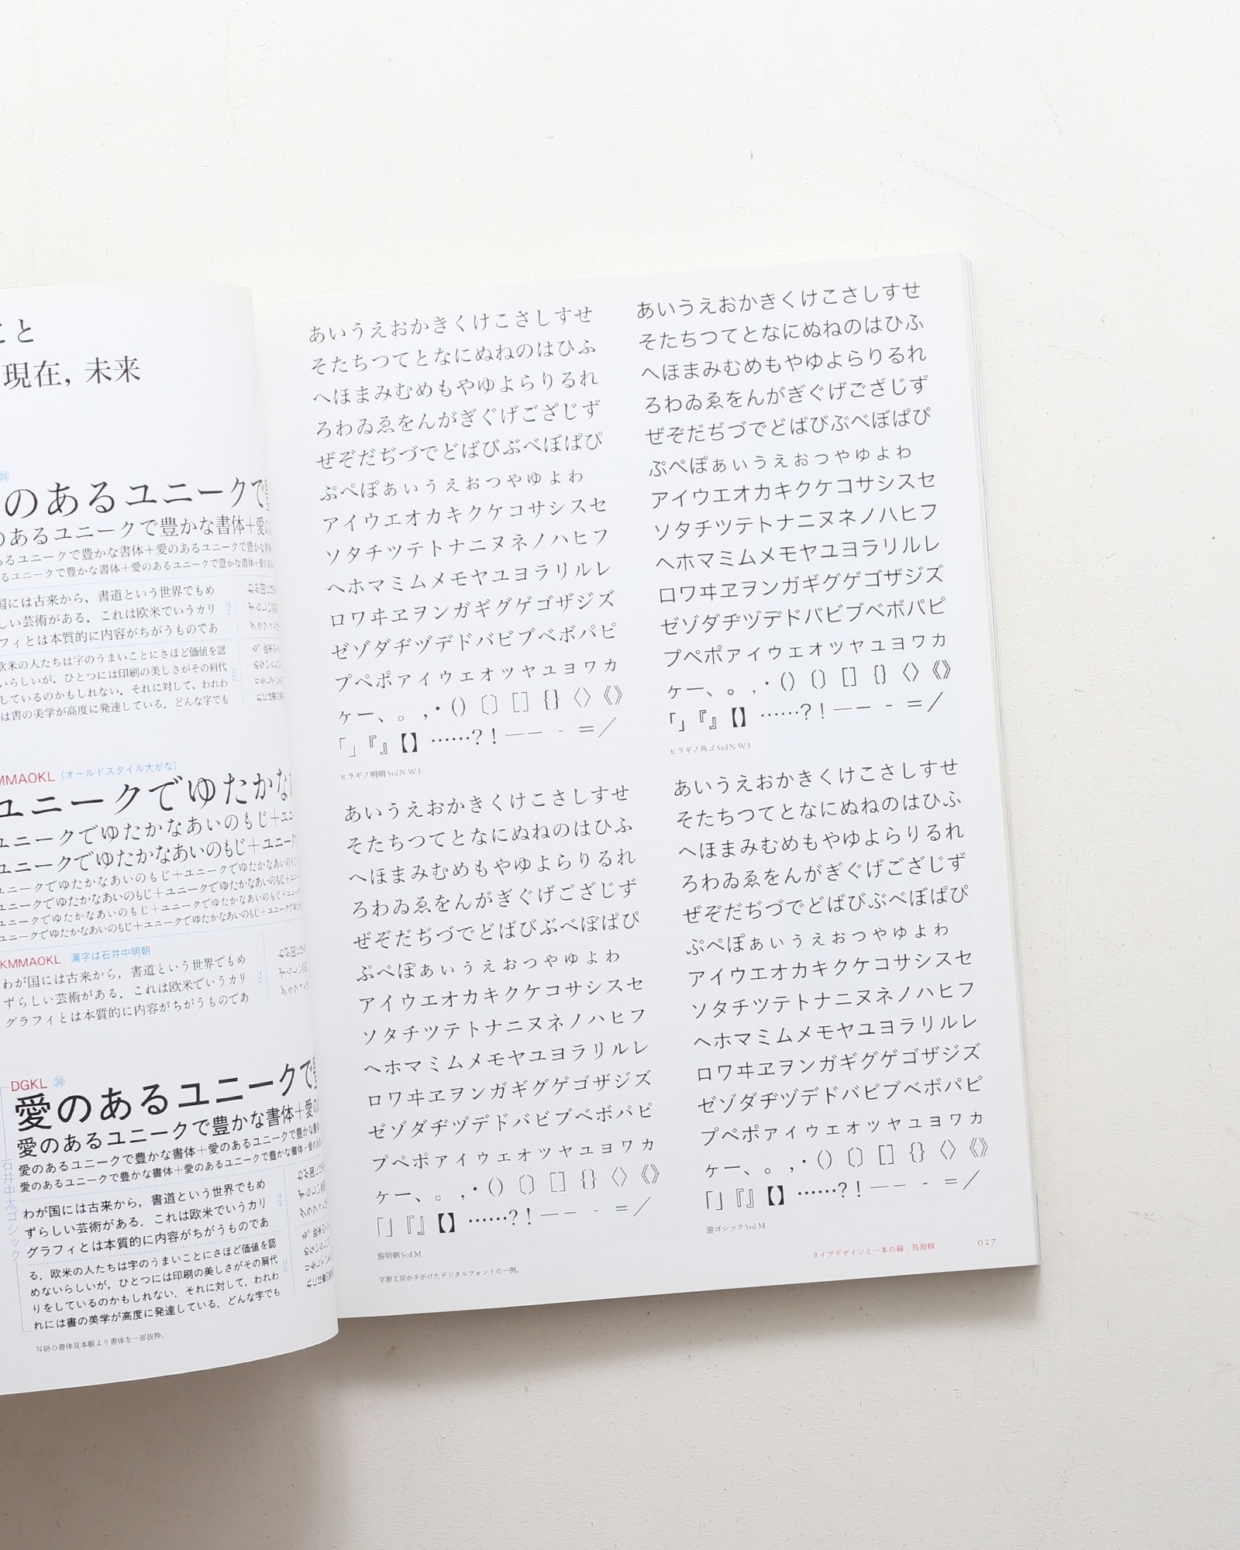 こと
現在，未来
のあるユニークで
のあるユニークで豊かな書体＋愛の
あるユニークで豊かな書体＋愛のあるユニークで豊かな
るユニークで豊かな書体＋愛のあるユニークで豊かな書体＋愛
国には古来から，書道という世界でもめ
しい芸術がある．これは欧米でいうカリ
フィとは本質的に内容がちがうものであ
欧米の人たちは字のうまいことにさほど価値を認
いらしいが，ひとつには印刷の美しさがその肩代
しているのかもしれない．それに対して，われわ
は書の美学が高度に発達している．どんな字でも
MMAOKL（オールドスタイル大がな）
ユニークでゆたかな
ユニークでゆたかなあいのもじ＋ユニ
ユニークでゆたかなあいのもじ＋ユニー
ユニークでゆたかなあいのもじ＋ユニークでゆたかなあいのも
ユニークでゆたかなあいのもじ＋ユニークでゆたかなあいのもじ＋
ユニークでゆたかなあいのもじ＋ユニークでゆたかなあいのもじ＋
ユニークでゆたかなあいのもじ＋ユニークでゆたかなあいのもじ＋ユニークで
KMMAOKL 漢字は石井中明朝
わが国には古来から，書道という世界でもめ
ずらしい芸術がある．これは欧米でいうカリ
グラフィとは本質的に内容がちがうものであ
DGKL 30
石井中太ゴシック
愛のあるユニークで
愛のあるユニークで豊かな書体＋愛の
愛のあるユニークで豊かな書体＋愛のあるユニークで豊かな
愛のあるユニークで豊かな書体＋愛のあるユニークで豊かな書体＋愛
わが国には古来から，書道という世界でもめ
ずらしい芸術がある．これは欧米でいうカリ
グラフィとは本質的に内容がちがうものであ
る．欧米の人たちは字のうまいことにさほど価値を認
めないらしいが，ひとつには印刷の美しさがその肩代
りをしているのかもしれない．それに対して，われわ
れには書の美学が高度に発達している．どんな字でも
写研の書体見本帳より書体を一部抜粋。
あいうえおかきくけこさしすせ
そたちつてとなにぬねのはひふ
へほまみむめもやゆよらりるれ
ろわゐゑをんがぎぐげござじず
ぜぞだぢづでどばびぶべぼぱぴ
ぷぺぽぁぃぅぇぉっゃゅょゎ
アイウエオカキクケコサシスセ
ソタチツテトナニヌネノハヒフ
ヘホマミムメモヤユヨラリルレ
ロワヰヱヲンガギグゲゴザジズ
ゼゾダヂヅデドバビブベボパピ
プペポァィゥェォッャュョヮヵ
ヶー、。，・（）〔〕［］｛｝〈〉《》
「」『』【】……？！―－‐＝／
ヒラギノ明朝 StdN W3
あいうえおかきくけこさしすせ
そたちつてとなにぬねのはひふ
へほまみむめもやゆよらりるれ
ろわゐゑをんがぎぐげござじず
ぜぞだぢづでどばびぶべぼぱぴ
ぷぺぽぁぃぅぇぉっゃゅょゎ
アイウエオカキクケコサシスセ
ソタチツテトナニヌネノハヒフ
ヘホマミムメモヤユヨラリルレ
ロワヰヱヲンガギグゲゴザジズ
ゼゾダヂヅデドバビブベボパピ
プペポァィゥェォッャュョヮヵ
ヶー、。，・（）〔〕［］｛｝〈〉《》
「」『』【】……？！―－‐＝／
游明朝 Std M
字游工房が手がけたデジタルフォントの一例。
あいうえおかきくけこさしすせ
そたちつてとなにぬねのはひふ
へほまみむめもやゆよらりるれ
ろわゐゑをんがぎぐげござじず
ぜぞだぢづでどばびぶべぼぱぴ
ぷぺぽぁぃぅぇぉっゃゅょゎ
アイウエオカキクケコサシスセ
ソタチツテトナニヌネノハヒフ
ヘホマミムメモヤユヨラリルレ
ロワヰヱヲンガギグゲゴザジズ
ゼゾダヂヅデドバビブベボパピ
プペポァィゥェォッャュョヮヵ
ヶー、。，・（）〔〕［］｛｝〈〉《》
「」『』【】……？！―－‐＝／
ヒラギノ角ゴ StdN W3
あいうえおかきくけこさしすせ
そたちつてとなにぬねのはひふ
へほまみむめもやゆよらりるれ
ろわゐゑをんがぎぐげござじず
ぜぞだぢづでどばびぶべぼぱぴ
ぷぺぽぁぃぅぇぉっゃゅょゎ
アイウエオカキクケコサシスセ
ソタチツテトナニヌネノハヒフ
ヘホマミムメモヤユヨラリルレ
ロワヰヱヲンガギグゲゴザジズ
ゼゾダヂヅデドバビブベボパピ
プペポァィゥェォッャュョヮヵ
ヶー、。，・（）〔〕［］｛｝〈〉《》
「」『』【】……？！―－‐＝／
游ゴシック Std M
タイプデザインと一本の線 鳥海修 027